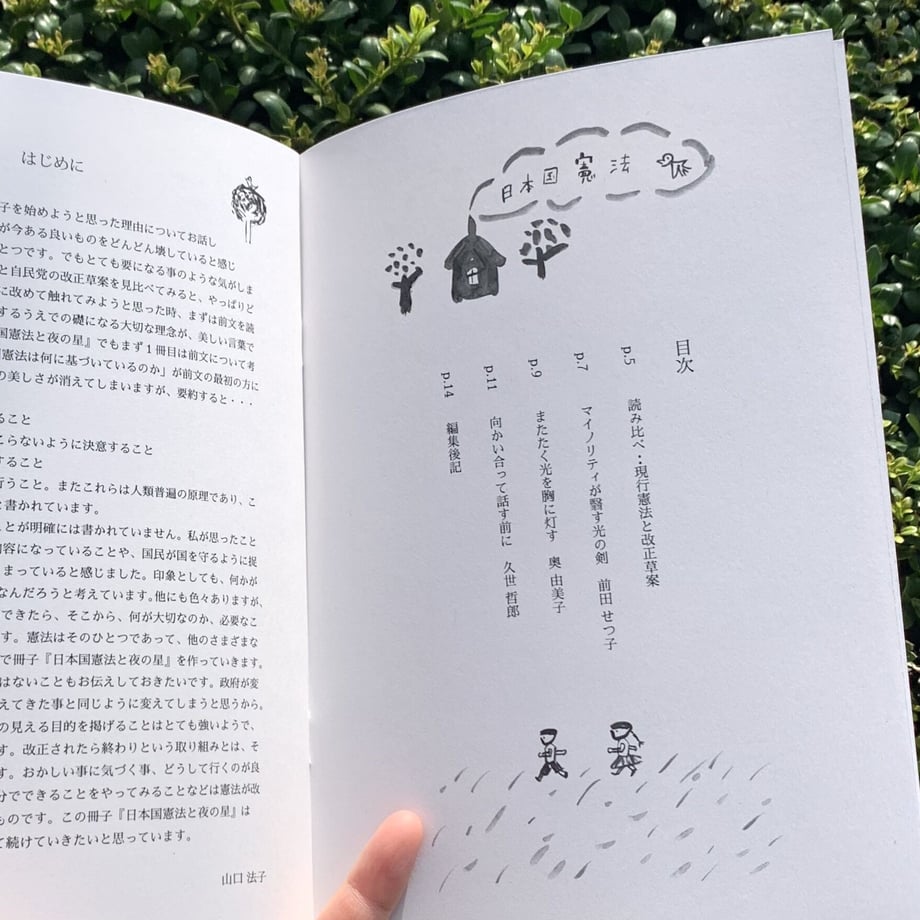 はじめに
子を始めようと思った理由についてお話し
が今ある良いものをどんどん壊していると感じ
とつです。でもとても要になる事のような気がしま
と自民党の改正草案を見比べてみると、やっぱりど
に改めて触れてみようと思った時、まずは前文を読
するうえでの礎になる大切な理念が、美しい言葉で
国憲法と夜の星』でもまず1冊目は前文について考
憲法は何に基づいているのか」が前文の最初の方に
の美しさが消えてしまいますが、要約すると・・・
ること
こらないように決意すること
すること
行うこと。またこれらは人類普遍の原理であり、こ
と書かれています。
ことが明確には書かれていません。私が思ったこと
内容になっていることや、国民が国を守るように捉
まっていると感じました。印象としても、何かが
なんだろうと考えています。他にも色々ありますが、
できたら、そこから、何が大切なのか、必要なこ
す。憲法はそのひとつであって、他のさまざまな
で冊子『日本国憲法と夜の星』を作っていきます。
はないこともお伝えしておきたいです。政府が変
えてきた事と同じように変えてしまうと思うから。
の見える目的を掲げることはとても強いようで、
す。改正されたら終わりという取り組みとは、そ
す。おかしい事に気づく事、どうして行くのが良
分でできることをやってみることなどは憲法が改
ものです。この冊子『日本国憲法と夜の星』は
て続けていきたいと思っています。
山口 法子
日本国憲法
目次
p.5 読み比べ:現行憲法と改正草案
p.7 マイノリティが翳す光の剣 前田 せつ子
p.9 またたく光を胸に灯す 奥 由美子
p.11 向かい合って話す前に 久世 哲郎
p.14 編集後記